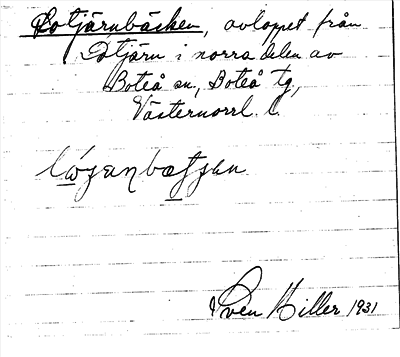 Lotjärnbäcken, avloppet från
Lotjärn i norra delen av
Boteå sn, Boteå tg,
Västernorrl. l.
Sven Hiller 1931